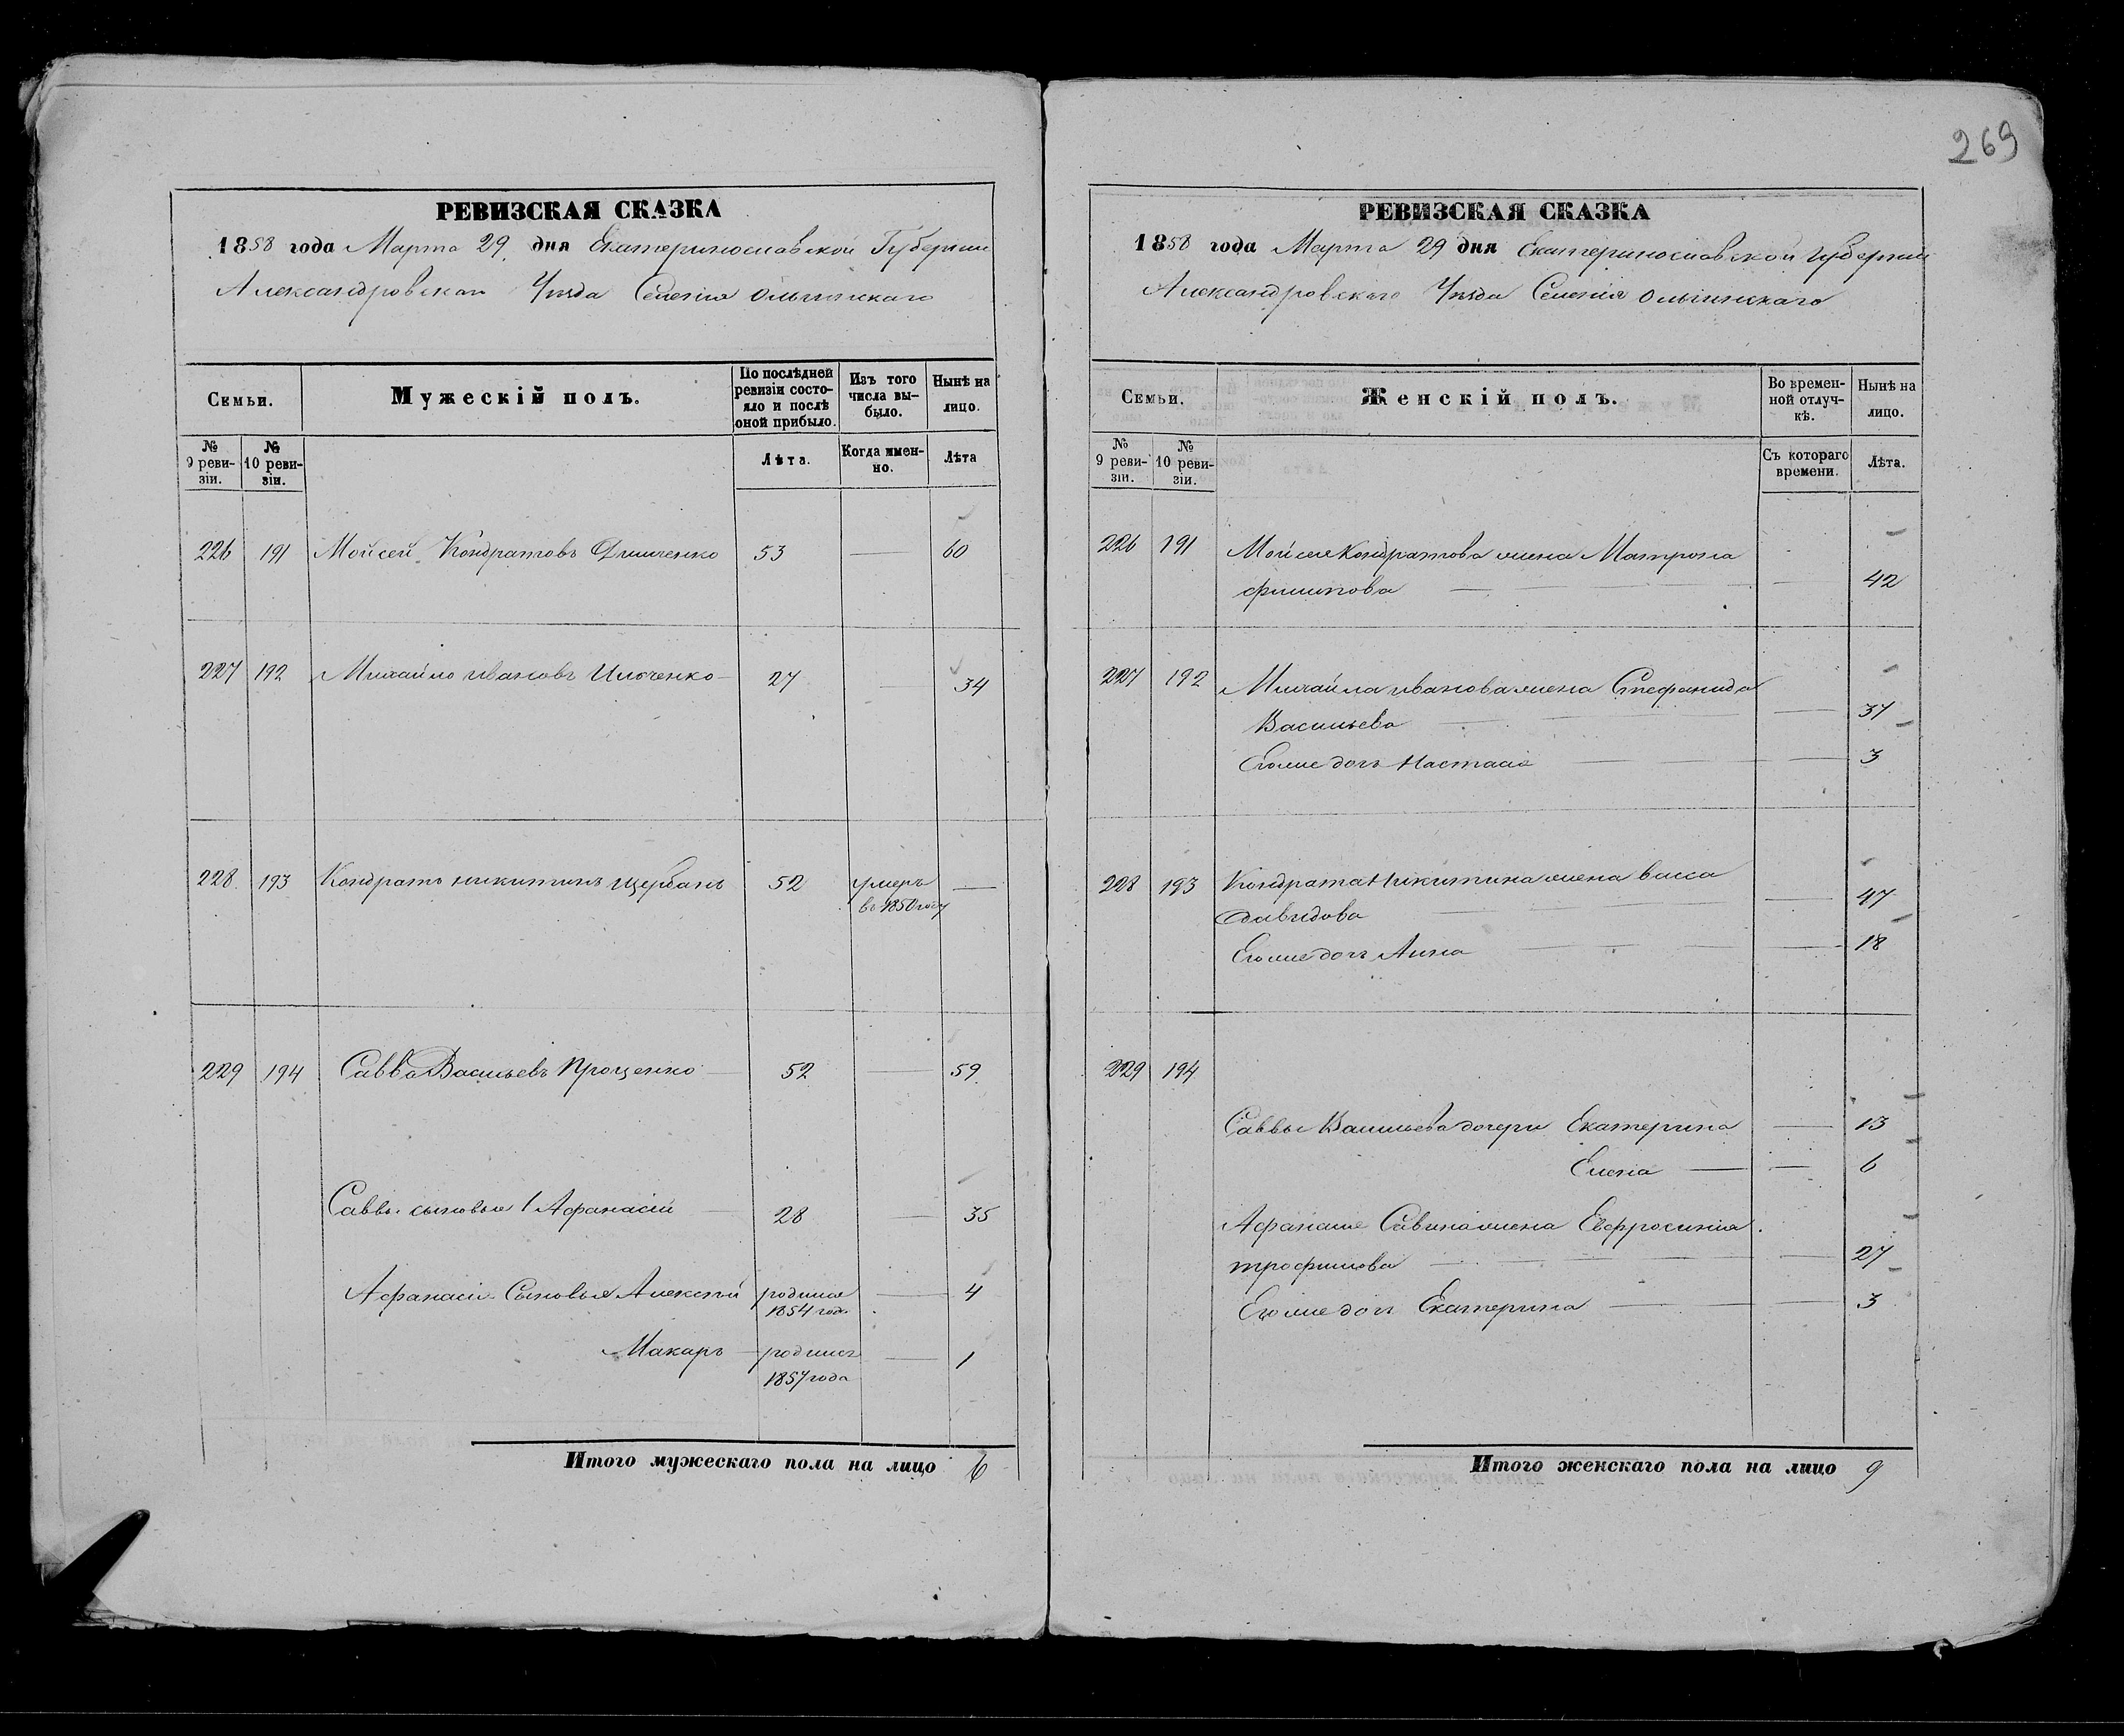 269
РЕВИЗСКАЯ СКАЗКА
1858 года Марта 29 дня Екатеринославской Губернии
Александровскаго Уѣзда Селенія Ольгинскаго
Семьи.
Мужескій полъ.
По послѣдней ревизіи состояло и послѣ оной прибыло.
Изъ того числа выбыло.
Нынѣ на лицо.
№ 9 ревизіи.
№ 10 ревизіи.
Лѣта.
Когда именно.
Лѣта
226 191 Мойсей Кондратовъ 53 — 60
227 192 Михайло Ивановъ Ильченко 27 — 34
228 193 Кондратъ Никитинъ Щербань 52 умеръ —
въ 1850 году
229 194 Савва Васильевъ Проценко — 52 — 59
Саввы сыновья 1 Афанасій — 28 — 35
Афанасія Сыновья Алексѣй родился — 4
1854 года
Макаръ — родился — 1
1857 года
Итого мужескаго пола на лицо 6
РЕВИЗСКАЯ СКАЗКА
1858 года Марта 29 дня Екатеринославской Губерніи
Александровскаго Уѣзда Селенія Ольгинскаго
Семьи.
Женскій полъ.
Во временной отлучкѣ.
Нынѣ на лицо.
№ 9 ревизіи.
№ 10 ревизіи.
Съ котораго времени.
Лѣта.
226 191 Мойсея Кондратова жена Матрона
Филипова — — 42
227 192 Михайла Иванова жена Стефанида
Васильева — — 37
Его же дочь Настасія — — 3
228 193 Кондрата Никитина жена Васса
Давидова — — 47
Его же дочь Анна — — 18
229 194
Саввы Васильева дочери Екатерина — 13
Елена — — 6
Афанасия Савина жена Евфросинія
Трофимова — — 27
Его же дочь Екатерина — — 3
Итого женскаго пола на лицо 9